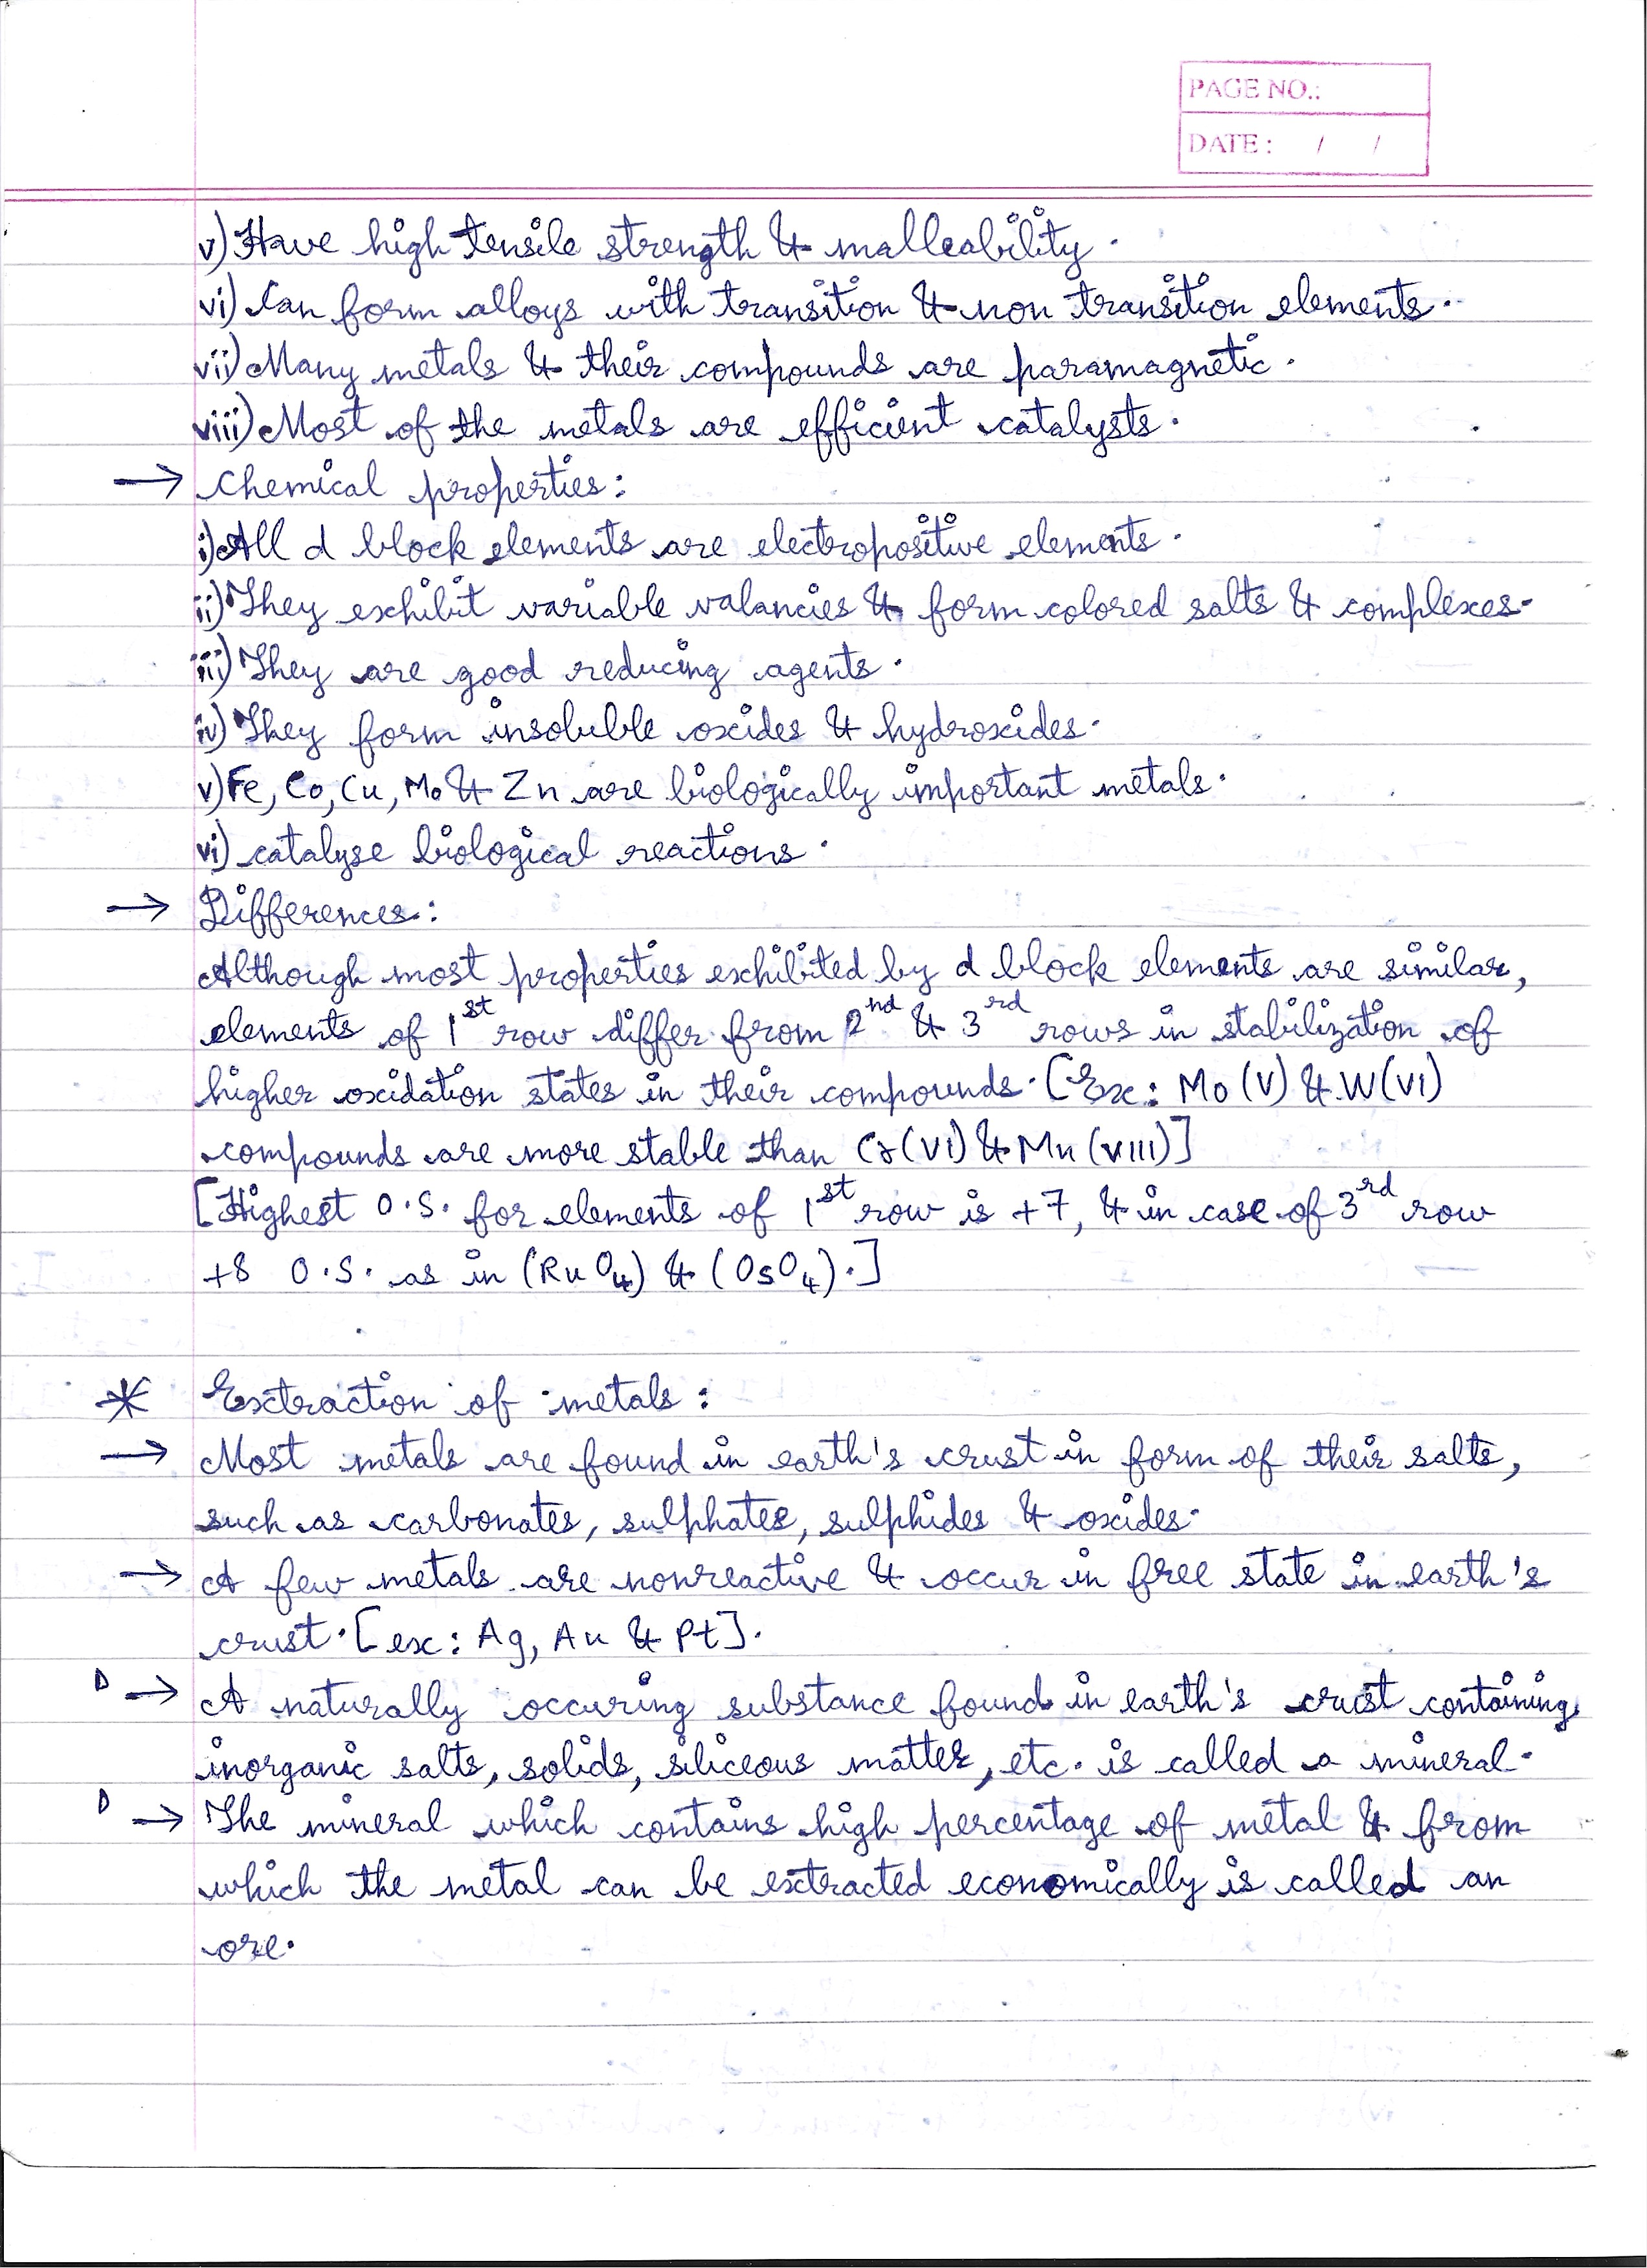 PAGE NO.:
DATE : / /
v) Have high tensile strength & malleability.
vi) Can form alloys with transition & non transition elements.
vii) Many metals & their compounds are paramagnetic.
viii) Most of the metals are efficient catalysts.
→ Chemical properties:
i) All d block elements are electropositive elements.
ii) They exhibit variable valancies & form colored salts & complexes.
iii) They are good reducing agents.
iv) They form insoluble oxides & hydroxides.
v) Fe, Co, Cu, Mo & Zn are biologically important metals.
vi) catalyse biological reactions.
→ Differences:
Although most properties exhibited by d block elements are similar,
elements of 1st row differ from 2nd & 3rd rows in stabilization of
higher oxidation states in their compounds. [Ex: Mo (V) & W(VI)
compounds are more stable than Cr(VI) & Mn (VIII)]
[Highest O.S. for elements of 1st row is +7, & in case of 3rd row
+8 O.S. as in (RuO4) & (OsO4).]
* Extraction of metals:
→ Most metals are found in earth's crust in form of their salts,
such as carbonates, sulphates, sulphides & oxides.
→ A few metals are nonreactive & occur in free state in earth's
crust. [ex: Ag, Au & Pt].
D → A naturally occuring substance found in earth's crust containing
inorganic salts, solids, siliceous matter, etc. is called a mineral.
D → The mineral which contains high percentage of metal & from
which the metal can be extracted economically is called an
ore.